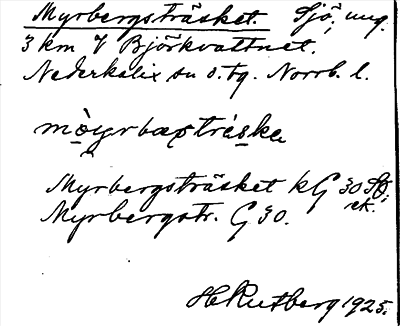 Myrbergsträsket. Sjö, ung.
3 km V Björkvattnet.
Nederkalix sn o. tg. Norrb. l.
Myrbergsträsket kG 30 SO.
ek.
Myrbergstr. G 30.
H Rutberg 1925.